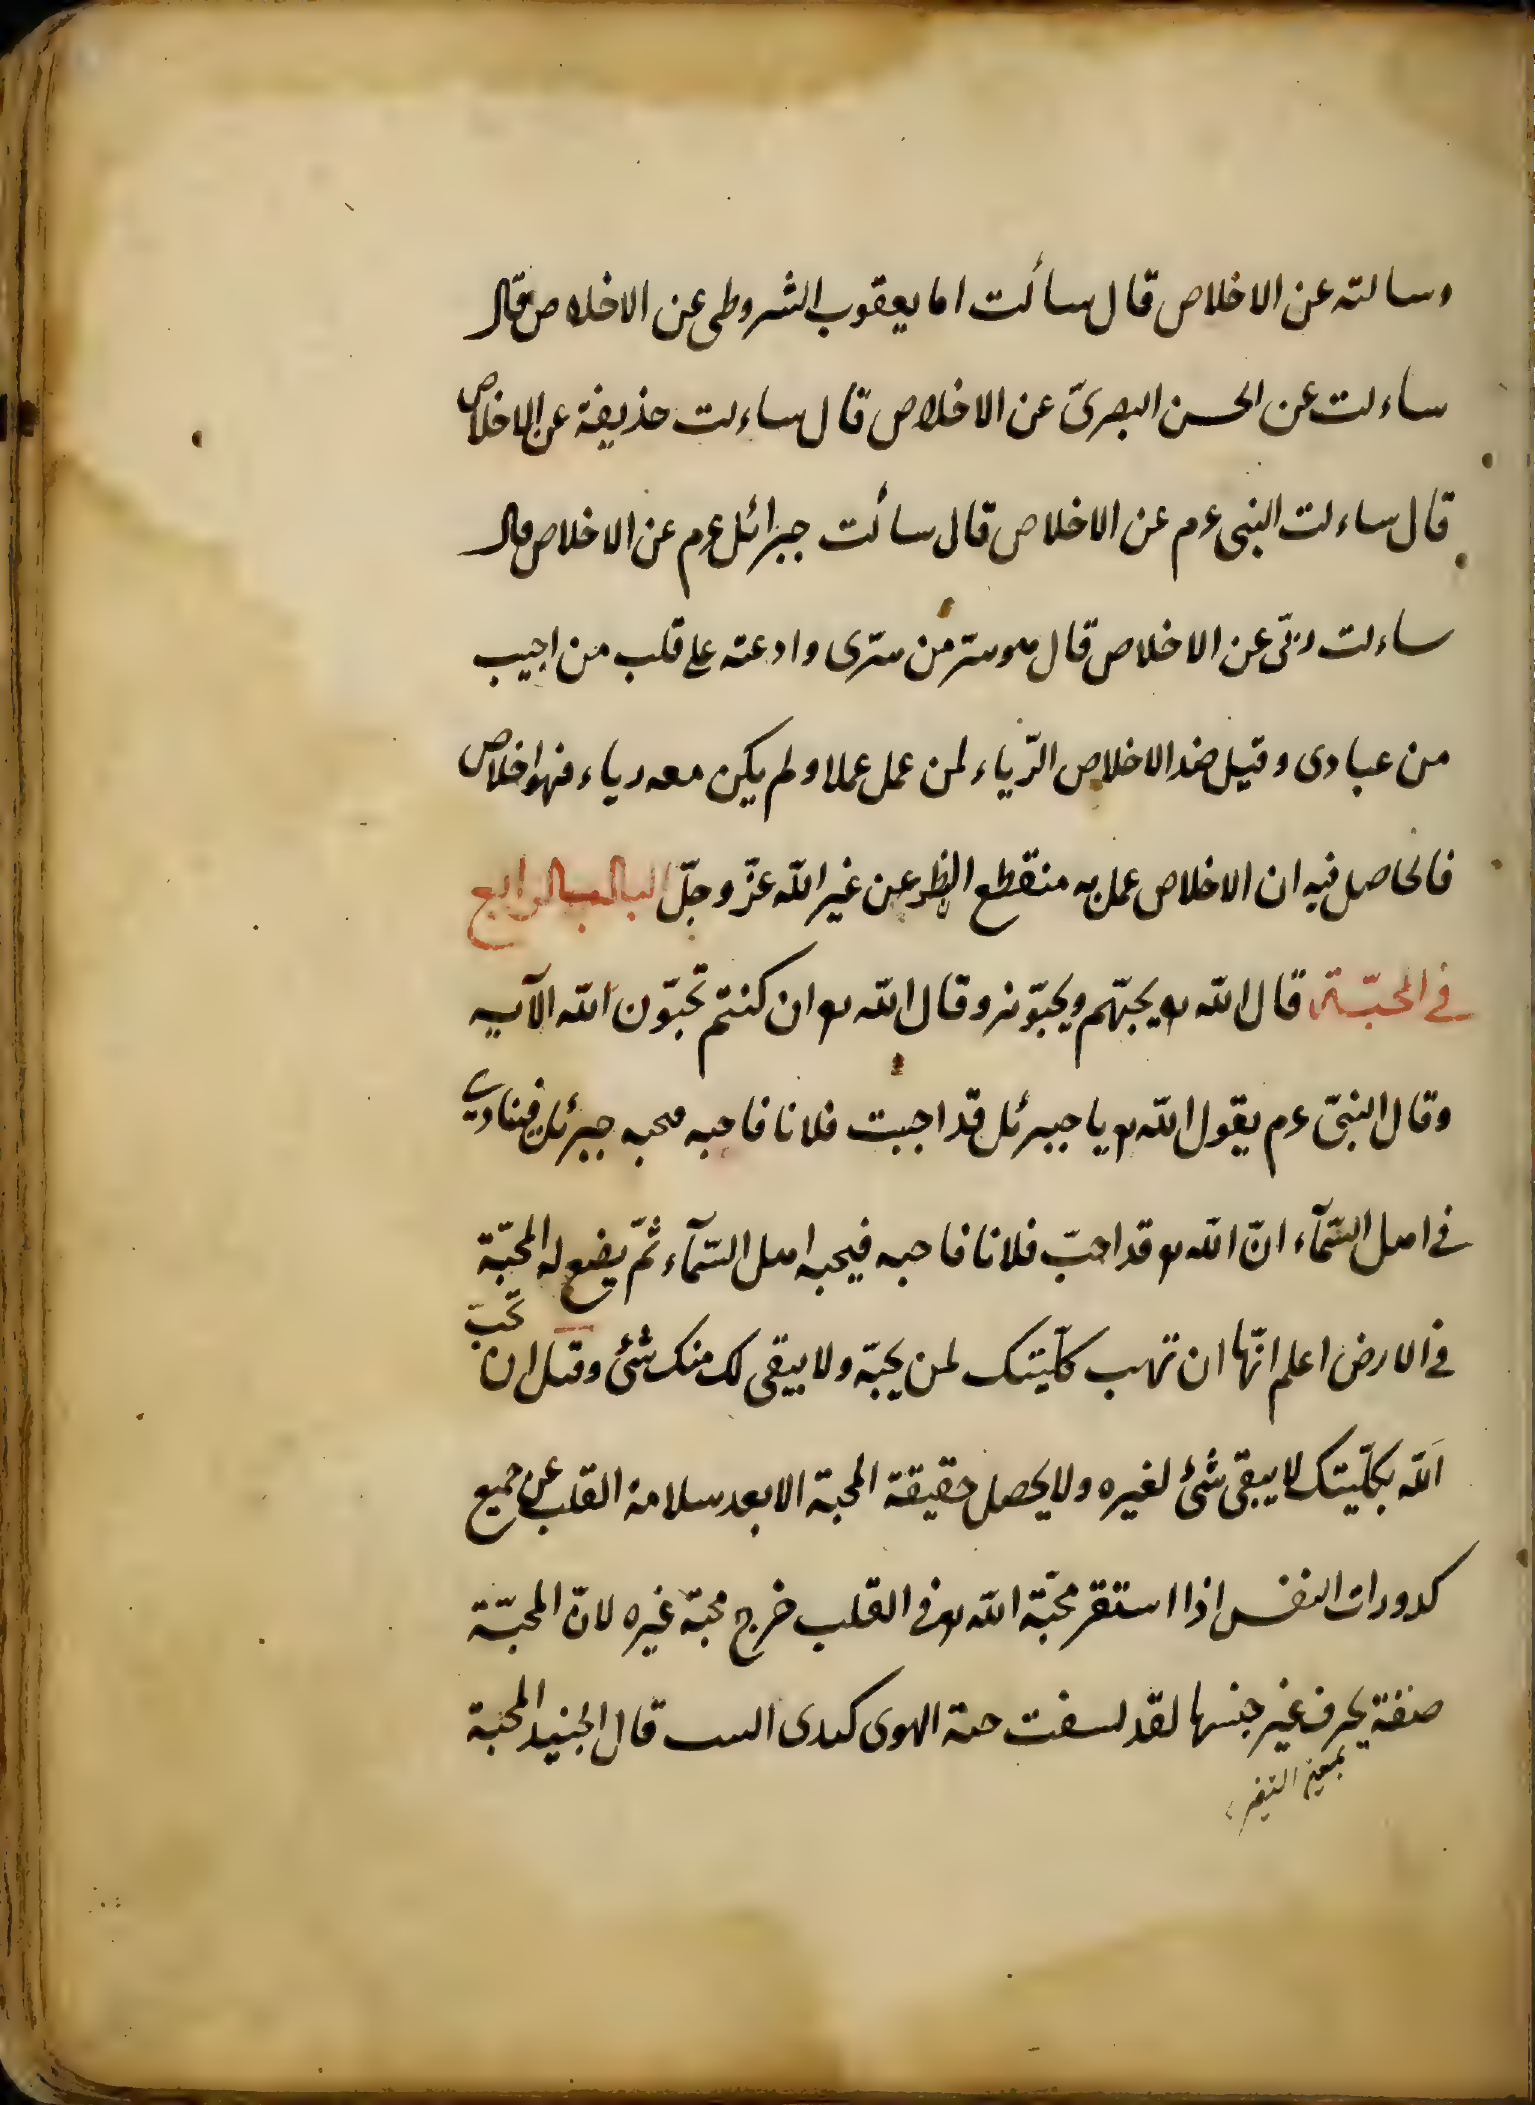 وسالته عن الاخلاص قال سأالت ابا يعقوب الشروطى عن الاخلاص قال
ساءلت عن الحسن البصرىّ عن الاخلاص قال ساءلت حذيفة عن الاخلاص
قال ساءلت النبى عم عن الاخلاص قال سأالت جبرائل عم عن الاخلاص قال
ساءلت ربّى عن الاخلاص قال هو سرّ من سرّى وادعته على قلب من احبب
من عبادى وقيل ضد الاخلاص الرّياء لمن عمل عملا ولم يكن معه رياء فهو اخلاص
فالحاصل فيه ان الاخلاص عمل به منقطع النظر عن غير الله عزّ وجلّ الباب الرابع
فى المحبّة قال الله تع يحبّهم ويحبّونه وقال الله تع ان كنتم تحبّون الله الآيه
وقال النبىّ عم يقول الله تع يا جبرئل قد احببت فلانا فاحبه فيحبه جبرئل فينادى
فى اهل السّمآء انّ الله تع قد احبّ فلانا فاحبه فيحبه اهل السّمآء ثمّ يضع له المحبّة
فى الارض اعلم انّها ان تهب كلّيتك لمن يحبّه ولا يبقى لك منك شئ وقيل ان تحبّ
الله بكلّيتك لا يبقى شئ لغيره ولا يحصل حقيقة المحبة الا بعد سلامة القلب عن جميع
كدورات النفس اذا استقر محبّة الله تع فى القلب خرج محبّة غيره لانّ المحبّة
صفة يحرف غير جنسها لقد لسفت حية الهوى كبدى قال الجنيد المحبة
بمعنى